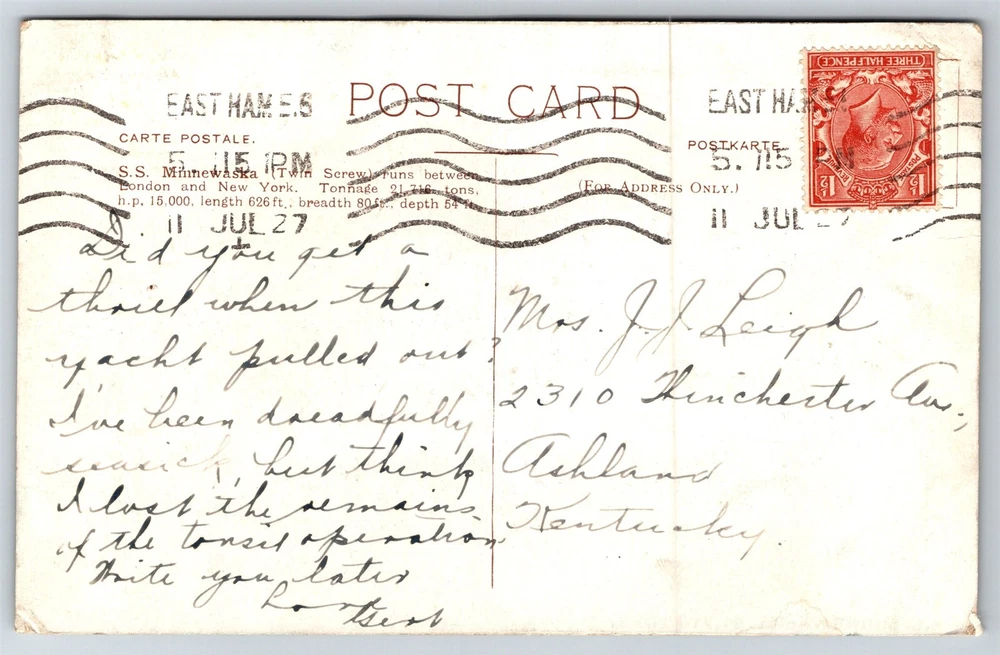 POST CARD
CARTE POSTALE.
POSTKARTE
S.S. Minnewaska (Twin Screw) runs between
London and New York. Tonnage 21,716 tons,
h.p. 15,000, length 626 ft., breadth 80 ft., depth 54 ft.
(FOR ADDRESS ONLY.)
EAST HAM E.6
5. 115 PM
11 JUL 27
EAST HAM
5. 115
11 JUL 27
THREE HALFPENCE
POSTAGE
1½
1½
Did you get a
thrill when this
yacht pulled out?
I've been dreadfully
seasick, but think
I lost the remains
of the tonsil operation
Write you later
Love
Gert
Mrs. J. J. Leigh
2310 Winchester Ave.,
Ashland
Kentucky.